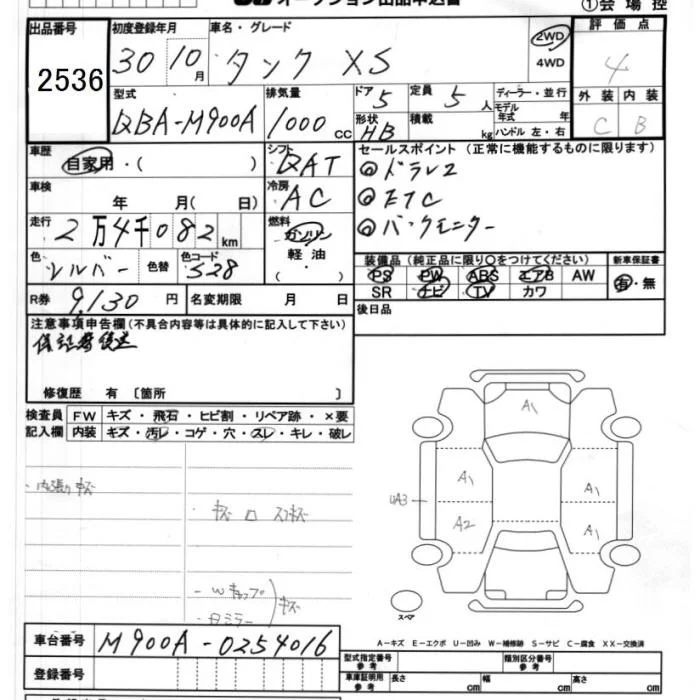 オークション出品申込書 ①会場控
出品番号 初度登録年月 車名・グレード 評価点
2536 30 10月 タンク XS 2WD 4WD 4
型式 排気量 ドア 5 定員 5人 ディーラー・並行 外装 内装
DBA-M900A 1000cc 形状 HB 積載 kg モデル年式 年 ハンドル 左・右 C B
車歴 自家用・( ) シフト DAT セールスポイント (正常に機能するものに限ります)
◎ドラレコ
車検 年 月( 日) 冷房 AC ◎ETC
走行 2万4千082km 燃料 ガソリン 軽油 ・( ) ◎バックモニター
色 シルバー 色替 色コード S28 装備品 (純正品に限り○をつけてください) 新車保証書
PS PW ABS エアB AW 有・無
R券 9,130円 名変期限 月 日 SR ナビ TV カワ
注意事項申告欄(不具合内容等は具体的に記入して下さい) 後日品
保証書後送
修復歴 有 〔箇所 〕
検査員 FW キズ・飛石・ヒビ割・リペア跡・×要
記入欄 内装 キズ・汚レ・コゲ・穴・スレ・キレ・破レ
A1
・内張りキズ A1 A1
キズ ロ スリキズ UA3 A2 A1
-Wキャップ
-Bミラー キズ
スペア
車台番号 M900A-0254016 A-キズ E-エクボ U-凹み W-補修跡 S-サビ C-腐食 XX-交換済
型式指定番号 参考 類別区分番号 参考
登録番号 車庫証明用 参考 長さ cm 幅 cm 高さ cm